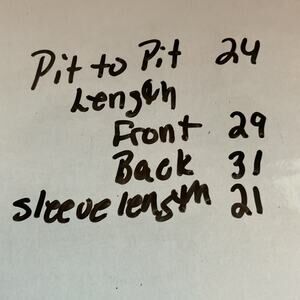 Pit to Pit 24
Length
Front 29
Back 31
sleeve length 21